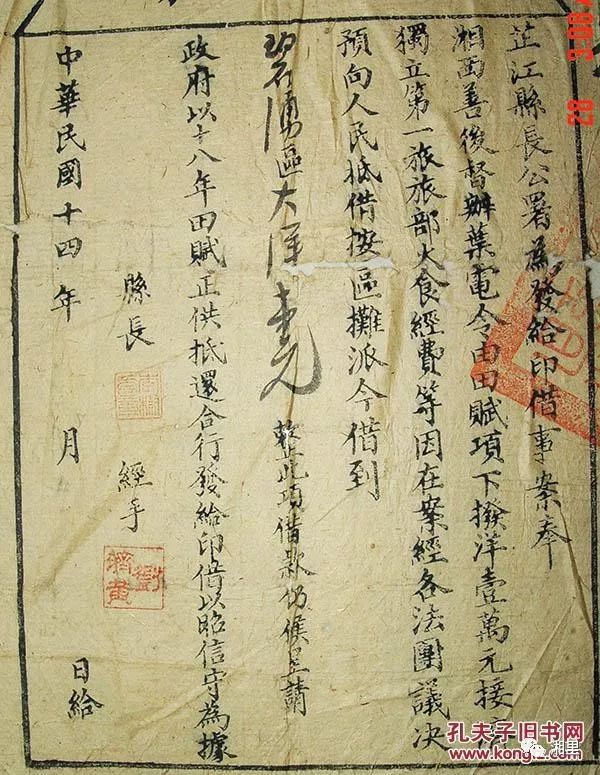 芷江縣長公署為發給印借事案奉
湘西善後督辦葉電令由田賦項下撥洋壹萬元接
獨立第一旅旅部火食經費等因在案經各法團議决
預向人民抵借按區攤派今借到
碧湧區大洋元
此項借款仍候呈請
政府以十八年田賦正供抵還合行發給印借以昭信守為據
縣長
經手
中華民國十四年 月 日給
孔夫子旧书网
www.kongfz.com
湘里